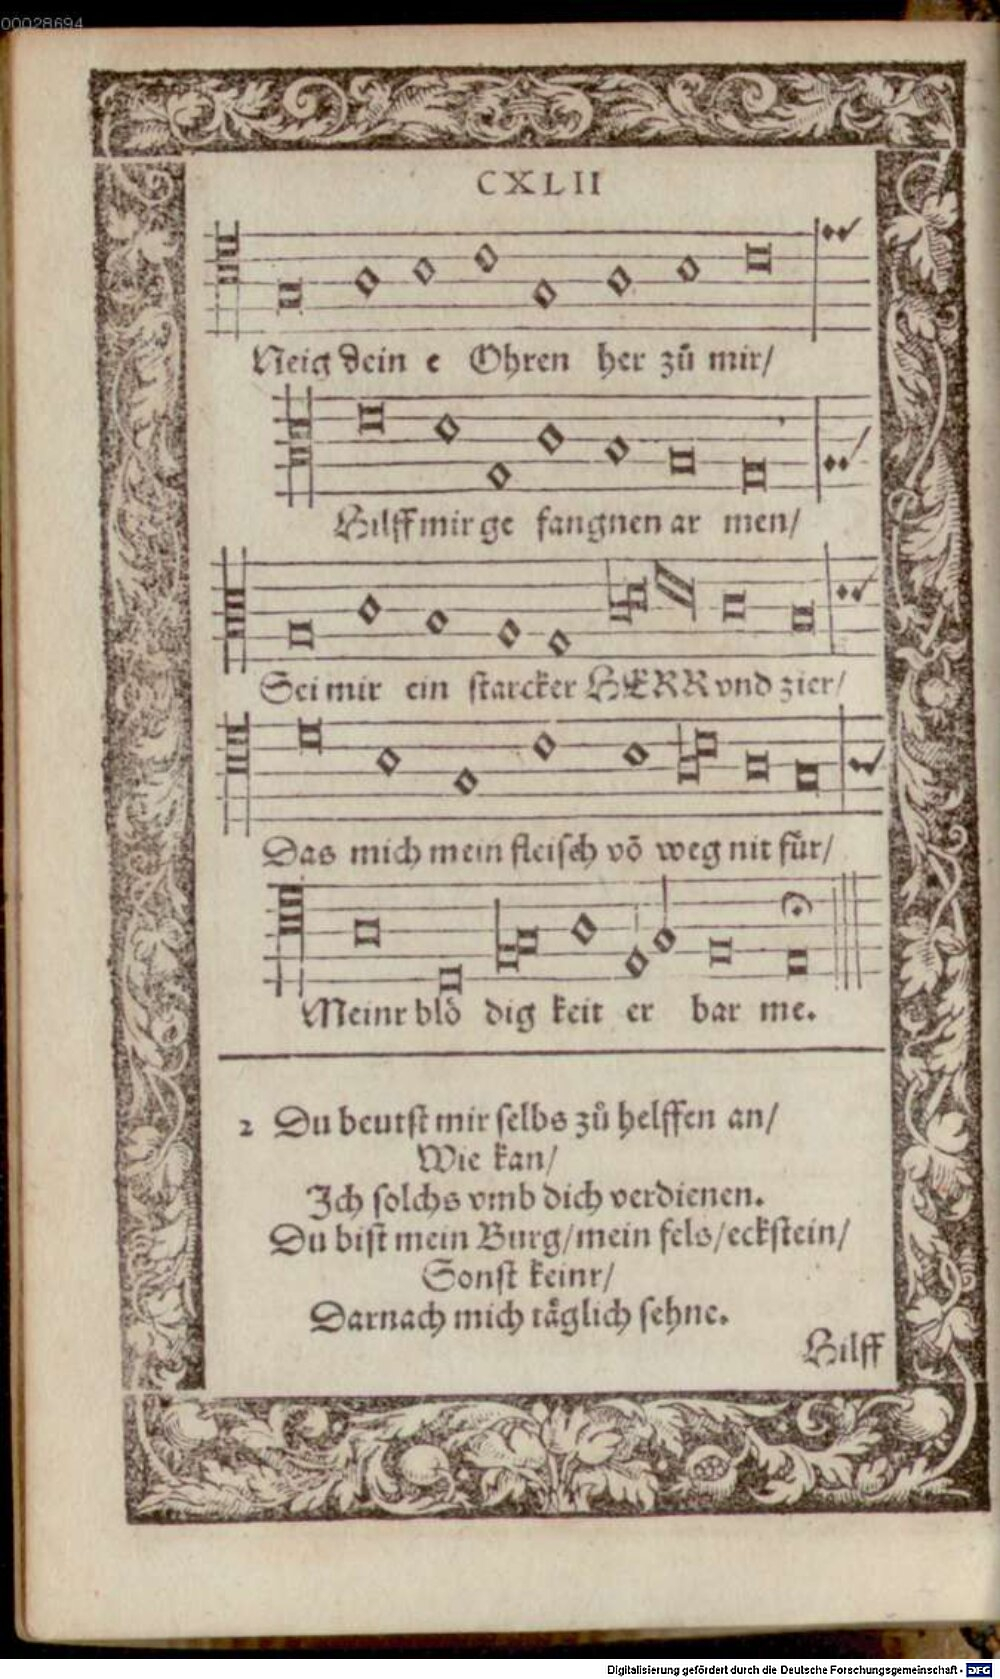 00028694
CXLII
Neig dein e Ohren her zů mir/
Hilff mir ge fangnen ar men/
Sei mir ein starcker HERR vnd zier/
Das mich mein fleisch võ weg nit für/
Meinr blö dig keit er bar me.
2 Du beutst mir selbs zů helffen an/
Wie kan/
Ich solchs vmb dich verdienen.
Du bist mein Burg/mein fels/eckstein/
Sonst keinr/
Darnach mich täglich sehne.
Hilff
Digitalisierung gefördert durch die Deutsche Forschungsgemeinschaft - DFG